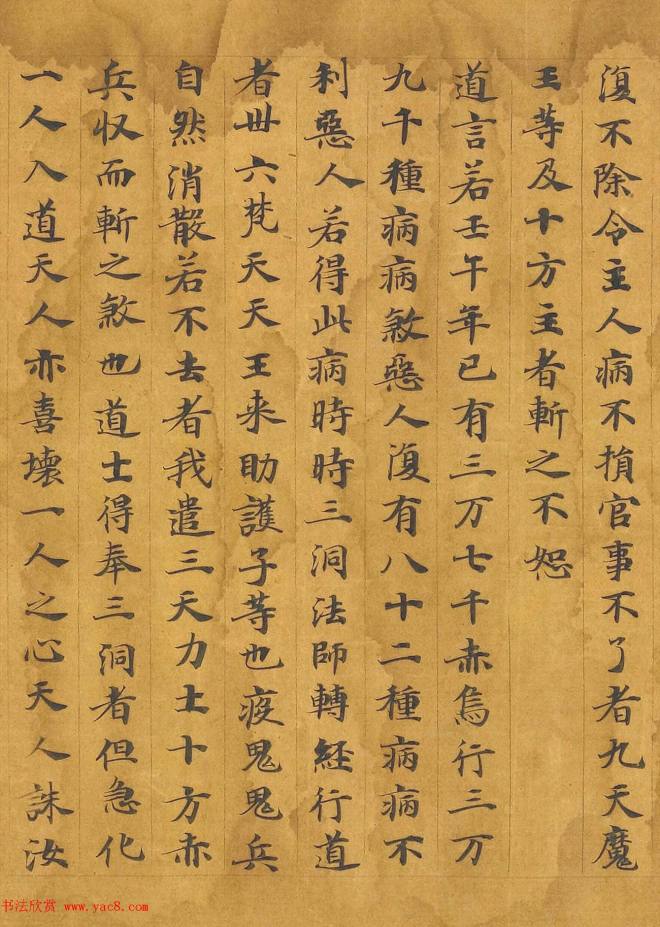 復不除令主人病不損官事不了者九天魔
王等及十方主者斬之不恕
道言若壬午年已有三万七千赤烏行三万
九千種病病煞惡人復有八十二種病病不
利惡人若得此病時時三洞法師轉經行道
者丗六梵天天王来助護子等也疫鬼鬼兵
自然消散若不去者我遣三天力士十方赤
兵収而斬之煞也道士得奉三洞者但急化
一人入道天人亦喜壞一人之心天人誅汝
书法欣赏 www.yac8.com